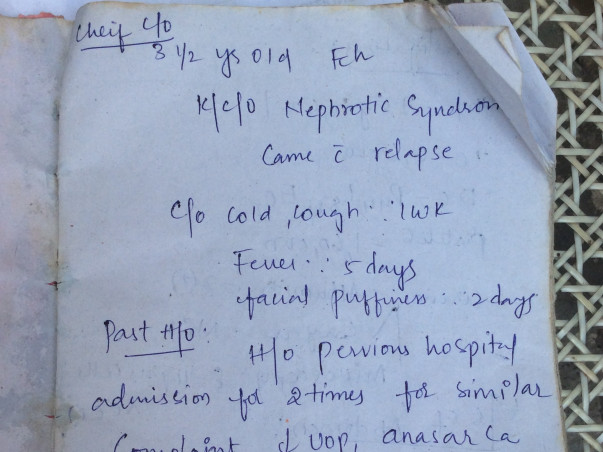 Cheif C/O
3 1/2 ys old Fch
K/C/O Nephrotic Syndrom
Came c̄ relapse
C/o cold, cough ∴ 1 WK
Fever ∴ 5 days
facial puffiness ∴ 2 days
Past H/O :
H/O pervious hospital
admission for 2 times for similar
Complaint ↓ UOP, anasarca